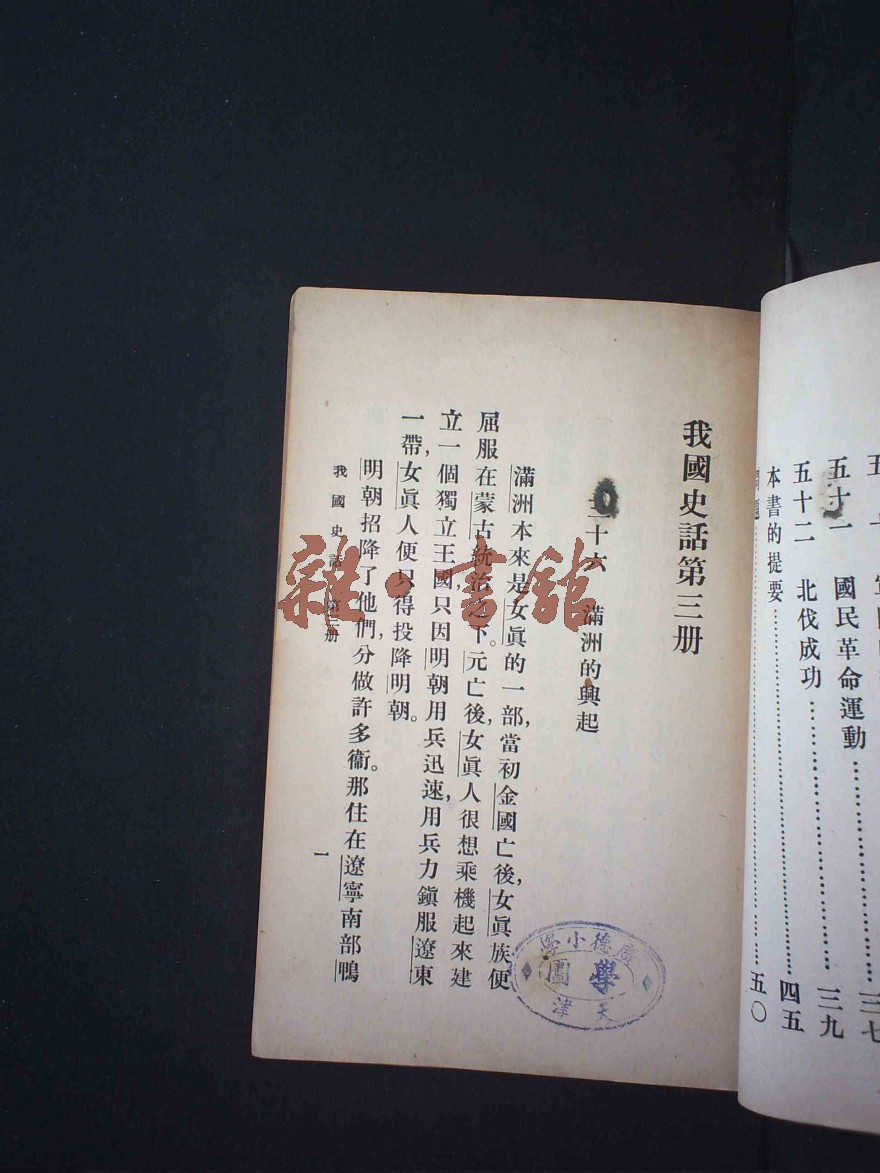 五十一 國民革命運動……三九
五十二 北伐成功……四五
本書的提要……五〇
我國史話第三册
三十六 滿洲的興起
滿洲本來是女眞的一部,當初金國亡後,女眞族便
屈服在蒙古統治之下。元亡後,女眞人很想乘機起來建
立一個獨立王國,只因明朝用兵迅速,用兵力鎭服遼東
一帶,女眞人便只得投降明朝。
明朝招降了他們,分做許多衞。那住在遼寧南部鴨
我國史話 第三册
一
德小學
學
天津
雜·書館